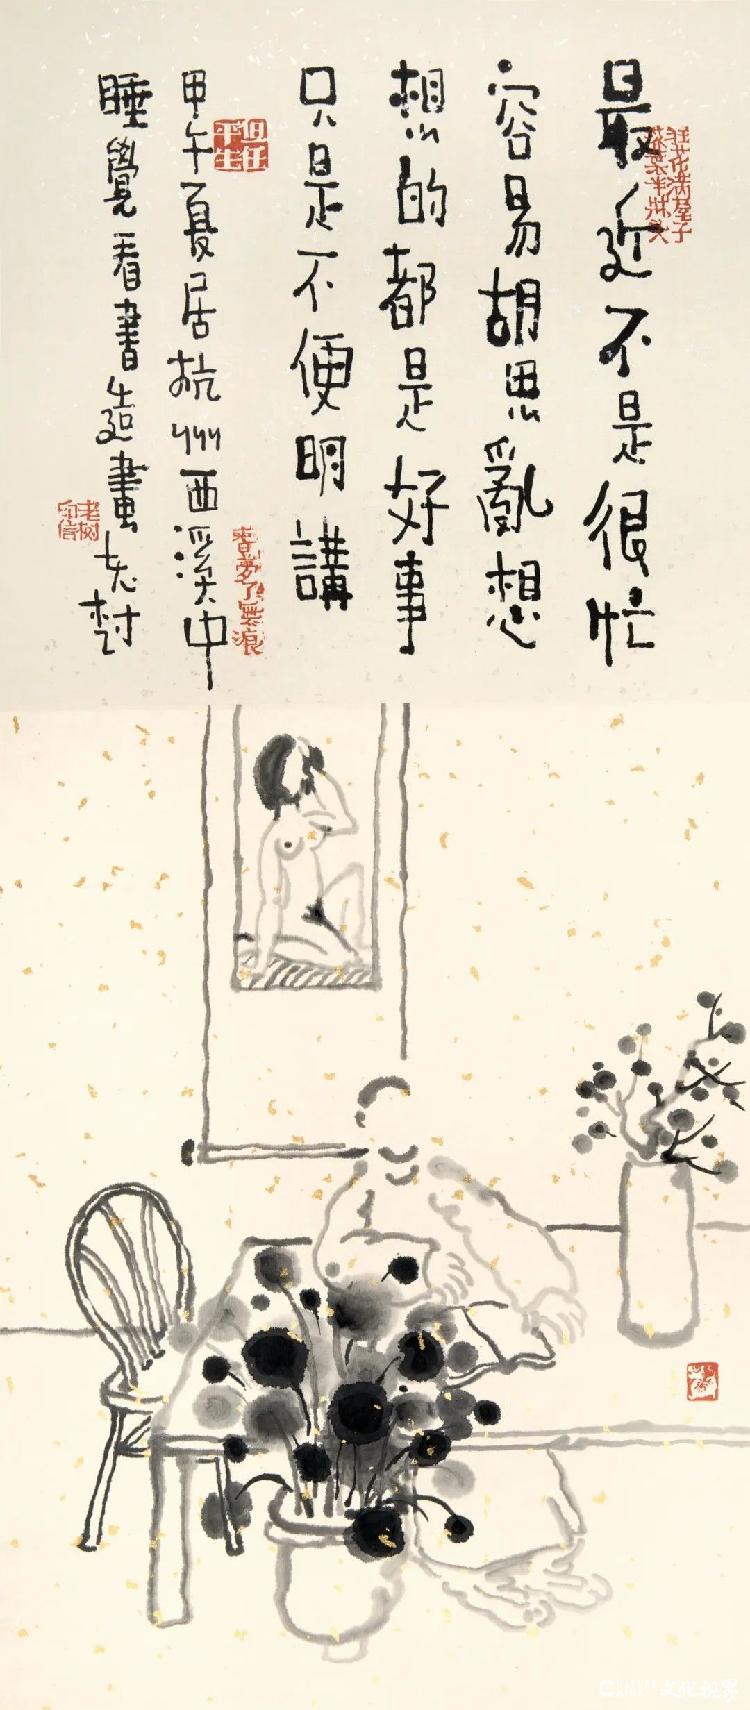 最近不是很忙
容易胡思亂想
想的都是好事
只是不便明講
甲午夏居杭州西溪中
睡覺看書造畫老树
老树
文化视界